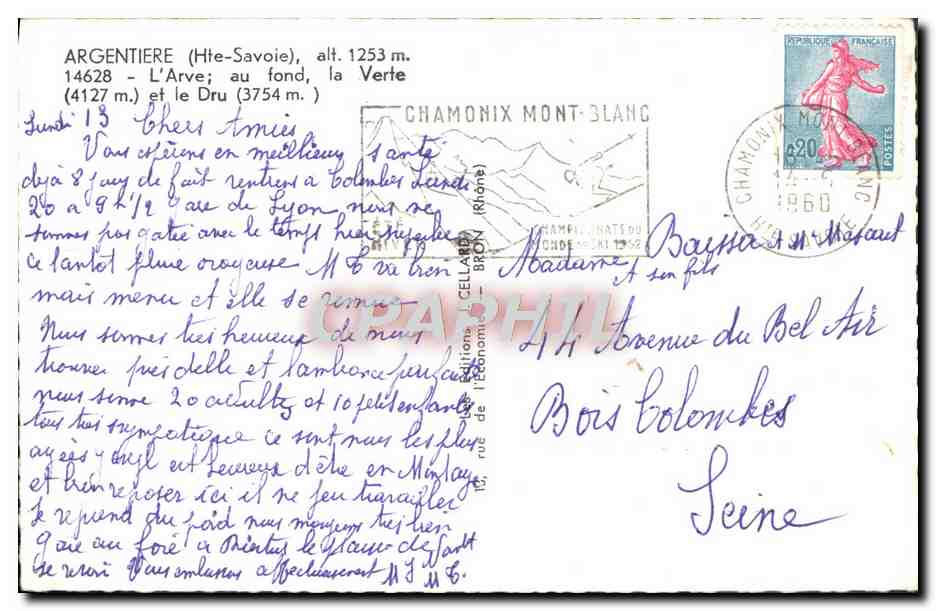 ARGENTIERE (Hte-Savoie), alt. 1253 m.
14628 - L'Arve; au fond, la Verte
(4127 m.) et le Dru (3754 m.)
Lundi 13 Chers Amies
Vous espérons en meilleure santé
déjà 8 jours de fait rentrons a Colombes Lundi
20 a 9h 1/2 gare de Lyon nous ne
sommes pas gatée avec le temps hier superbe
ce tantot pluie orageuse M va bien
mais menu et elle se remue
Nous sommes tres heureux de nous
trouver près d'elle et l'ambiance
nous sommes 20 adultes et 10 petits enfants
tous très sympatique ce sont nous les plus
agées est heureux d'être en Montagne
et bien reposer ici il ne peu travailler
Je reprend du poid nous mangeons tres bien
a Bientot le plaisir de
se revoir Vous embrassons affectueusement
CHAMONIX MONT-BLANC
CHAMPIONNATS DU
MONDE DE SKI 1962
CHAMONIX MONT-BLANC
14-6
1960
HTE SAVOIE
REPUBLIQUE FRANÇAISE
0,20
POSTES
Les Editions J. CELLARD
10, rue de l'Economie - BRON (Rhône)
Madame Bayssa et Mr Mascaret
A son fils
44 Avenue du Bel Air
Bois Colombes
Seine
CPAPHIL